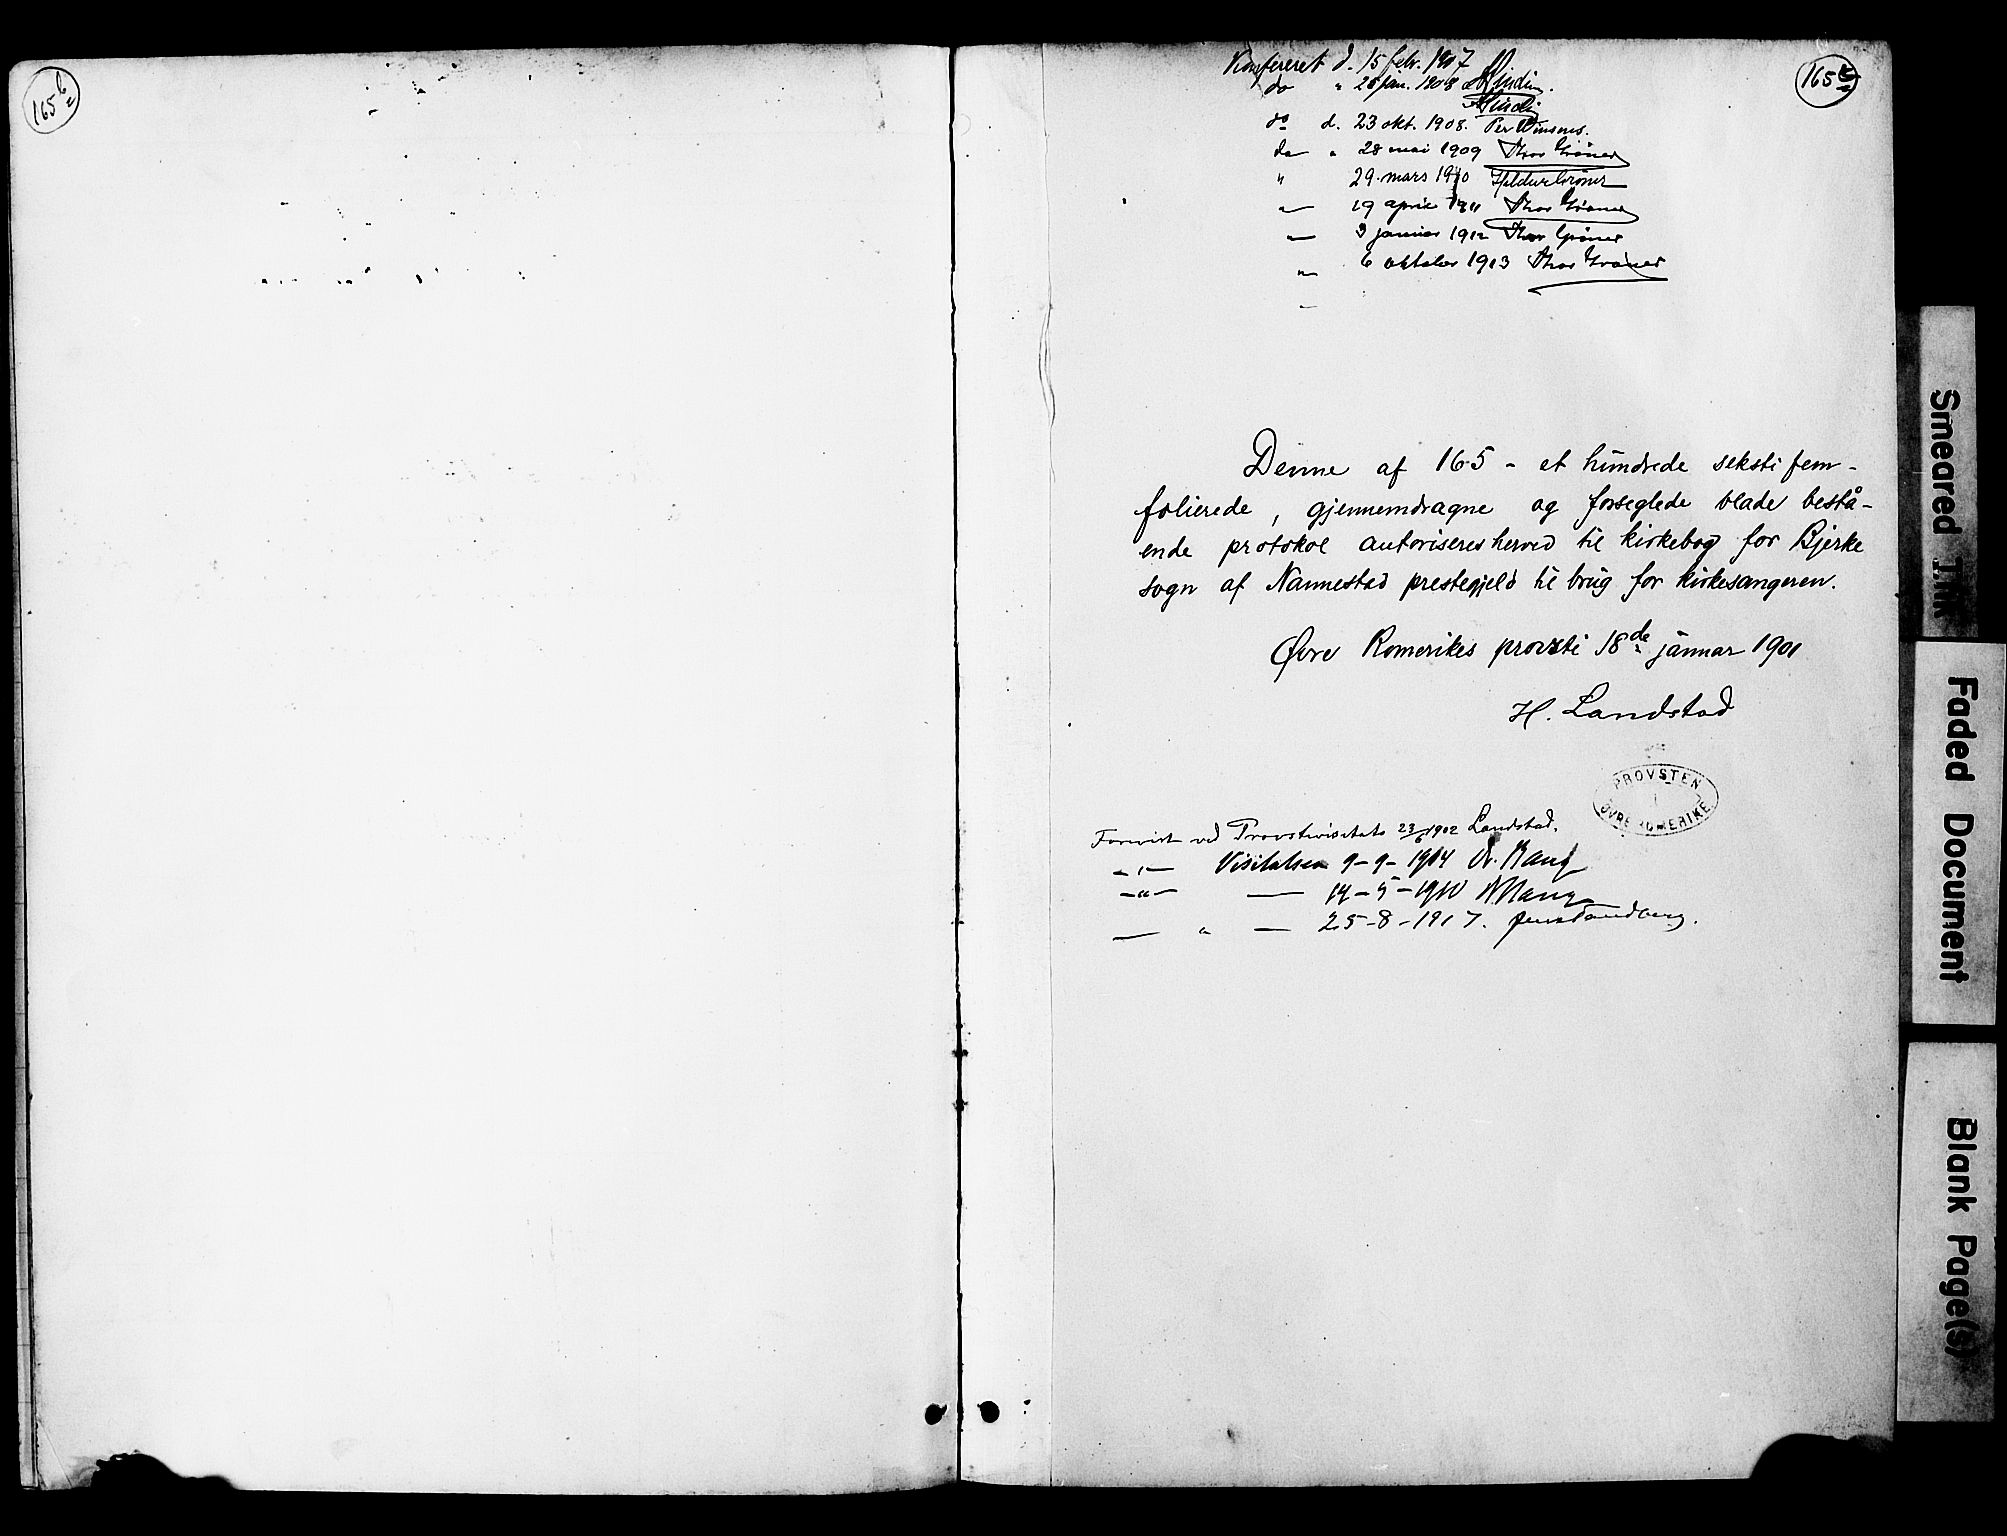 165 b
165 c
Konfereret d. 15 febr. 1907
do " 28 jan. 1908
do d. 23 okt. 1908.
do " 28 mai 1909 Thor Grøner
" 29. mars 1910
" 19 april 1911 Thor Grøner
" 3 januar 1912 Thor Grøner
" 6 oktober 1913 Thor Grøner
Denne af 165 - et hundrede seksti fem -
folierede, gjennemdragne og forseglede blade bestå-
ende protokol autoriseres herved til kirkebog for Bjerke
sogn af Nannestad prestegjeld til brug for kirkesangeren.
Øvre Romerikes provsti 18de januar 1901
H. Landstad
PROVSTEN
I
ØVRE ROMERIKE
Forevist ved Provstevisitats 23/6 1902 Landstad.
- " - Visitatsen 9-9-1904 A. Bang
- " - — 14-5-1910 A Bang
— " — 25-8-1917. Jens Tandberg.
Smeared Ink
Faded Document
Blank Page(s)